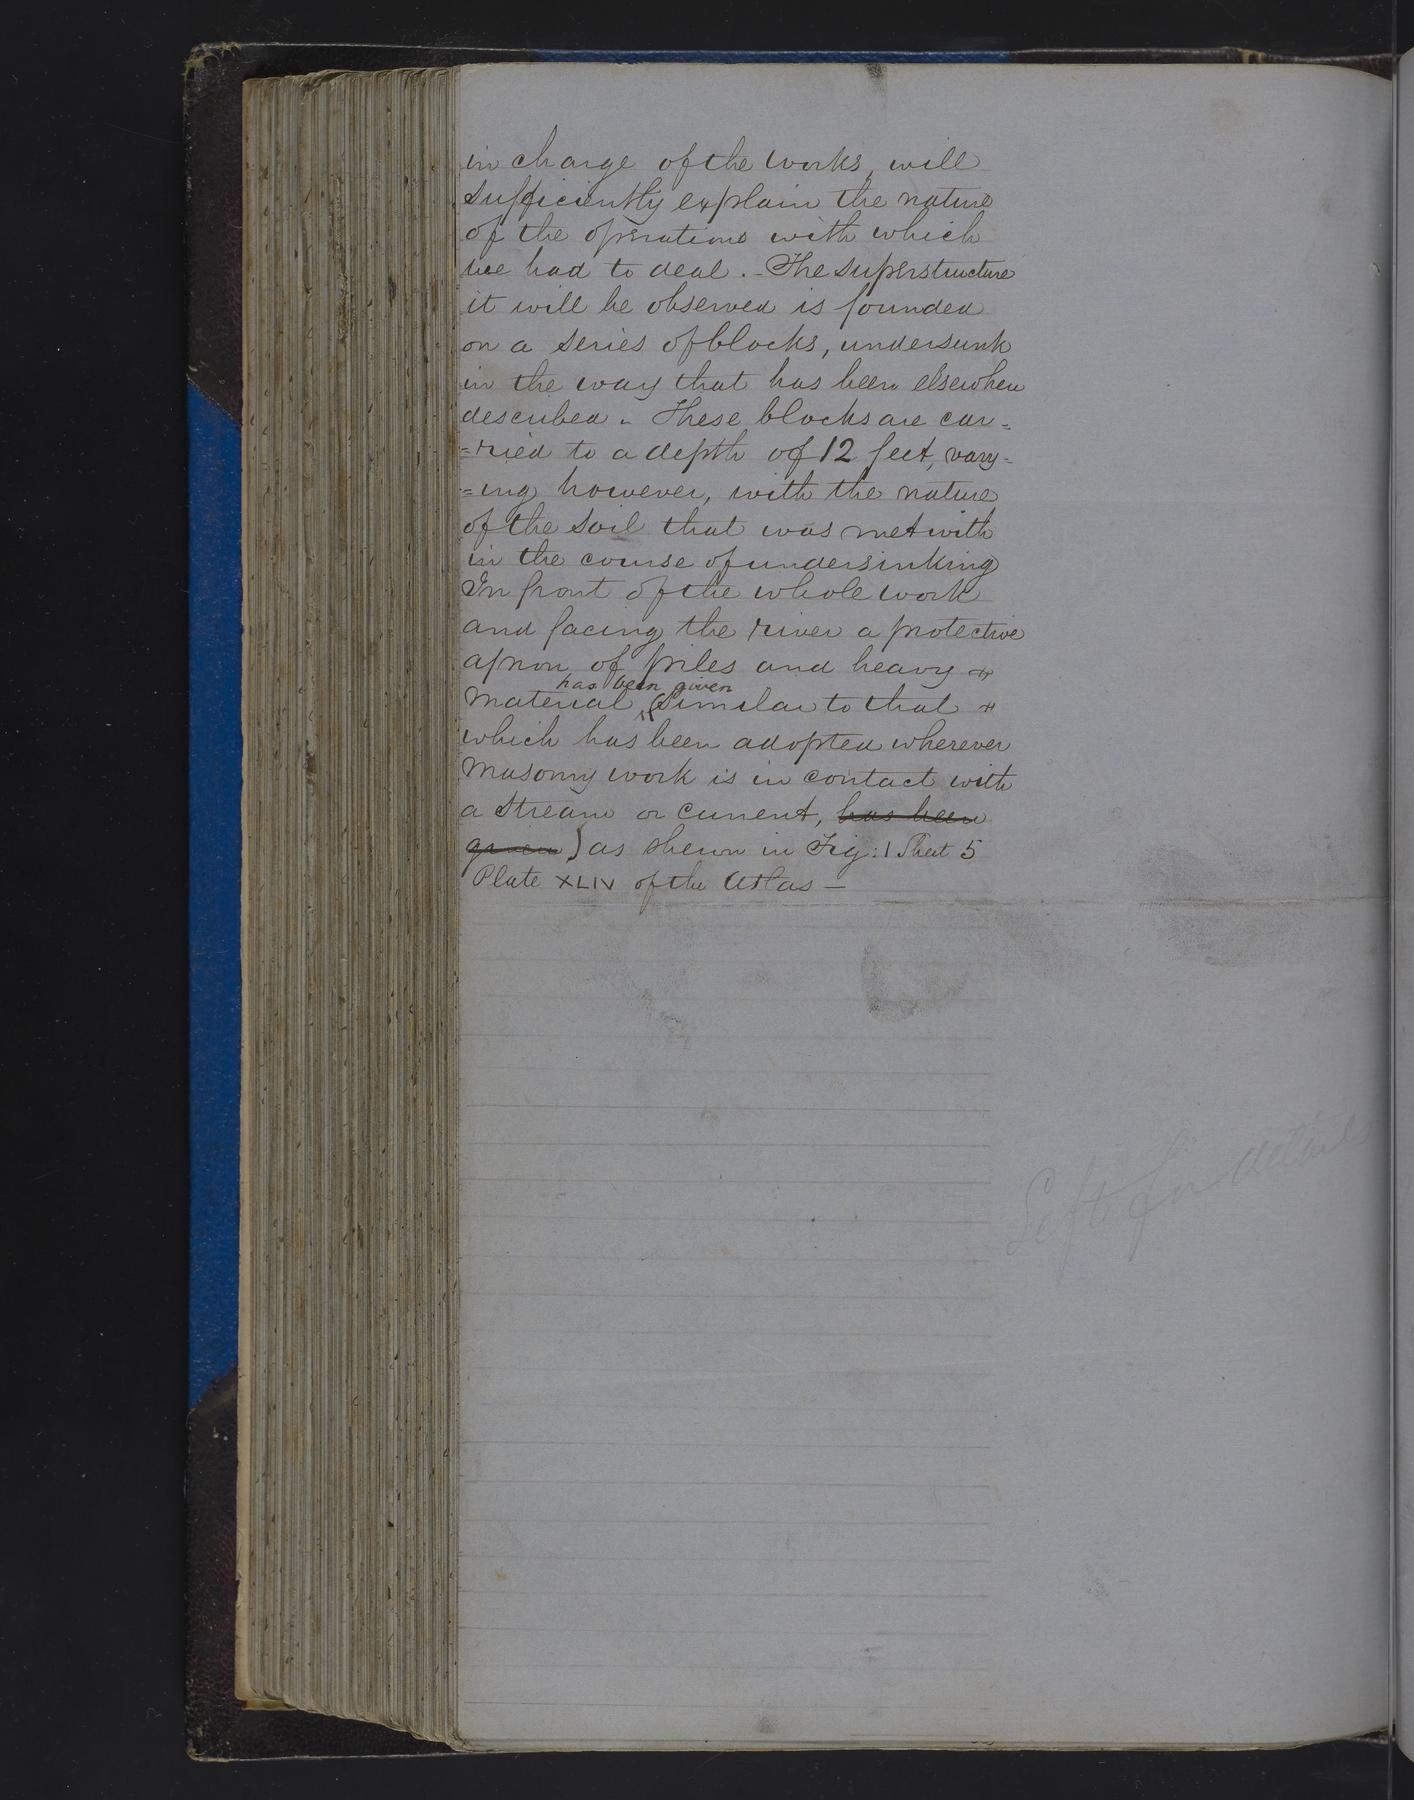 in charge of the works, will
sufficiently explain the nature
of the operations with which
we had to deal. - The superstructure
it will be observed is founded
on a series of blocks, undersunk
in the way that has been elsewhere
described. These blocks are car=
=ried to a depth of 12 feet, vary=
=ing however, with the nature
of the soil that was met with
in the course of undersinking
In front of the whole work
and facing the river a protective
apron of piles and heavy
has been given
material, (similar to that
which has been adopted wherever
masonry work is in contact with
a stream or current, has been
given) as shewn in Fig: 1 Sheet 5
Plate XLIV of the Atlas —
Left for details